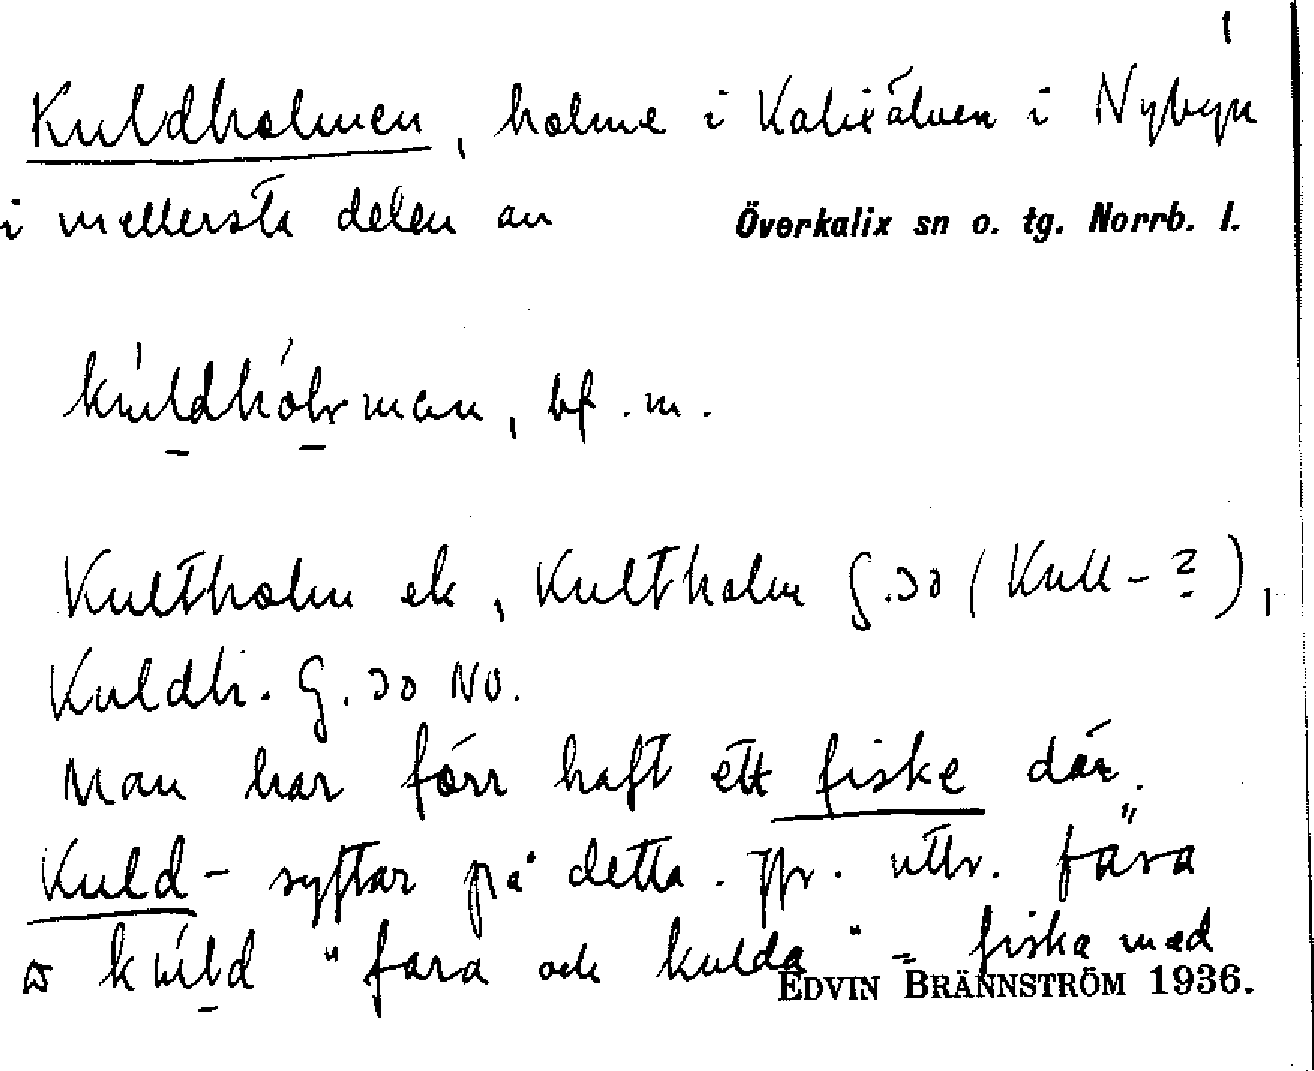 1
Kuldholmen, holme i Kalixälven i Nybyn
i mellersta delen av Överkalix sn o. tg. Norrb. l.
bf. m.
Kultholm ek, Kultholm G.30 (Kull-?),
Kuldh. G. 30 NO.
Man har förr haft ett fiske där.
Kuld- syftar på detta. Jfr. uttr. fara
o kuld "fara och kulda" = fiska med
EDVIN BRÄNNSTRÖM 1936.